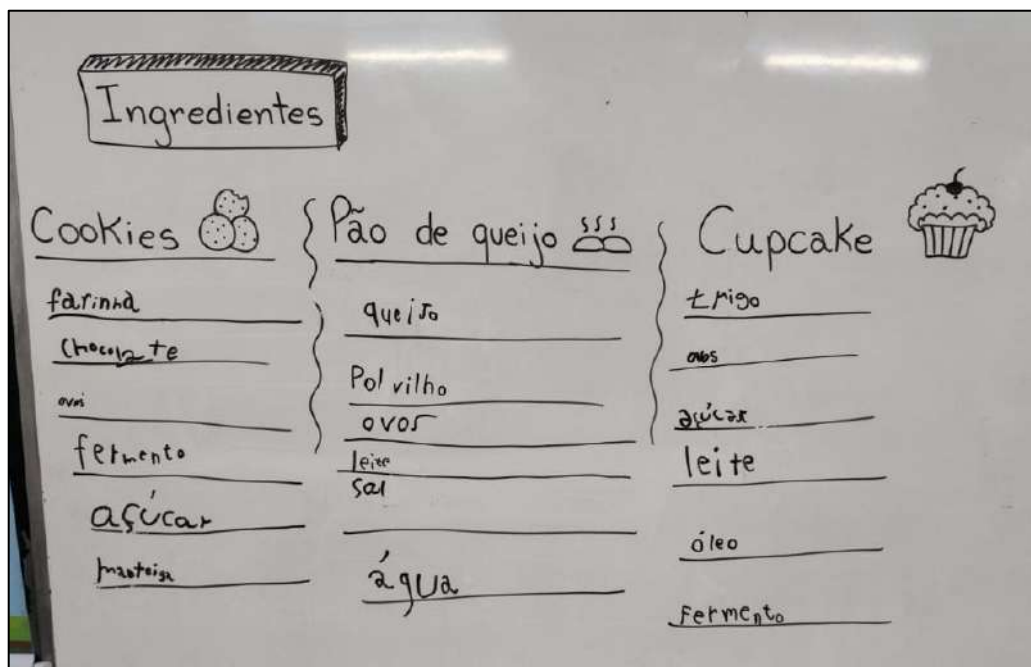 Ingredientes
Cookies
farinha
chocolate
ovos
fermento
açúcar
manteiga
Pão de queijo
queijo
Polvilho
ovos
leite
sal
água
Cupcake
trigo
ovos
açúcar
leite
óleo
Fermento